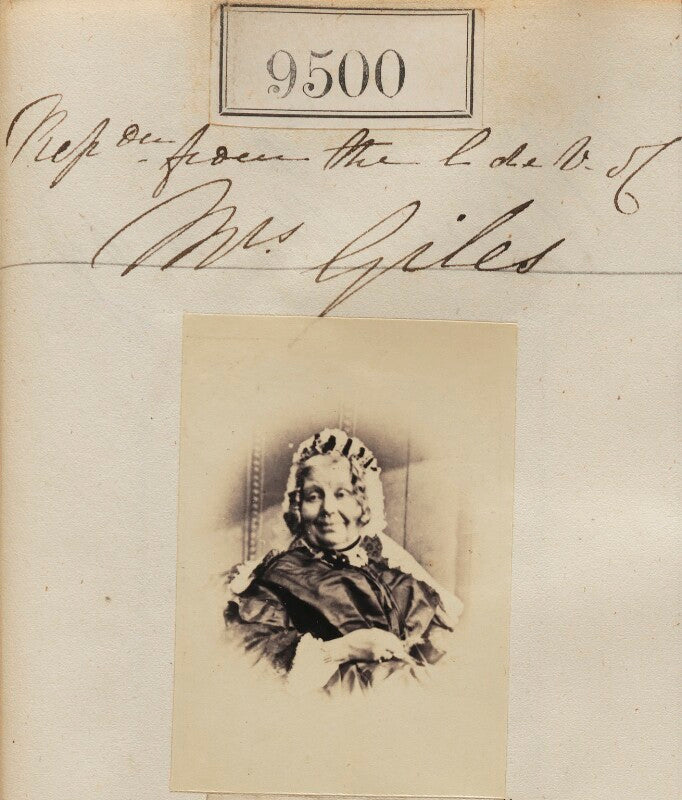 9500
Rep on from the C de V. of
Mrs. Giles